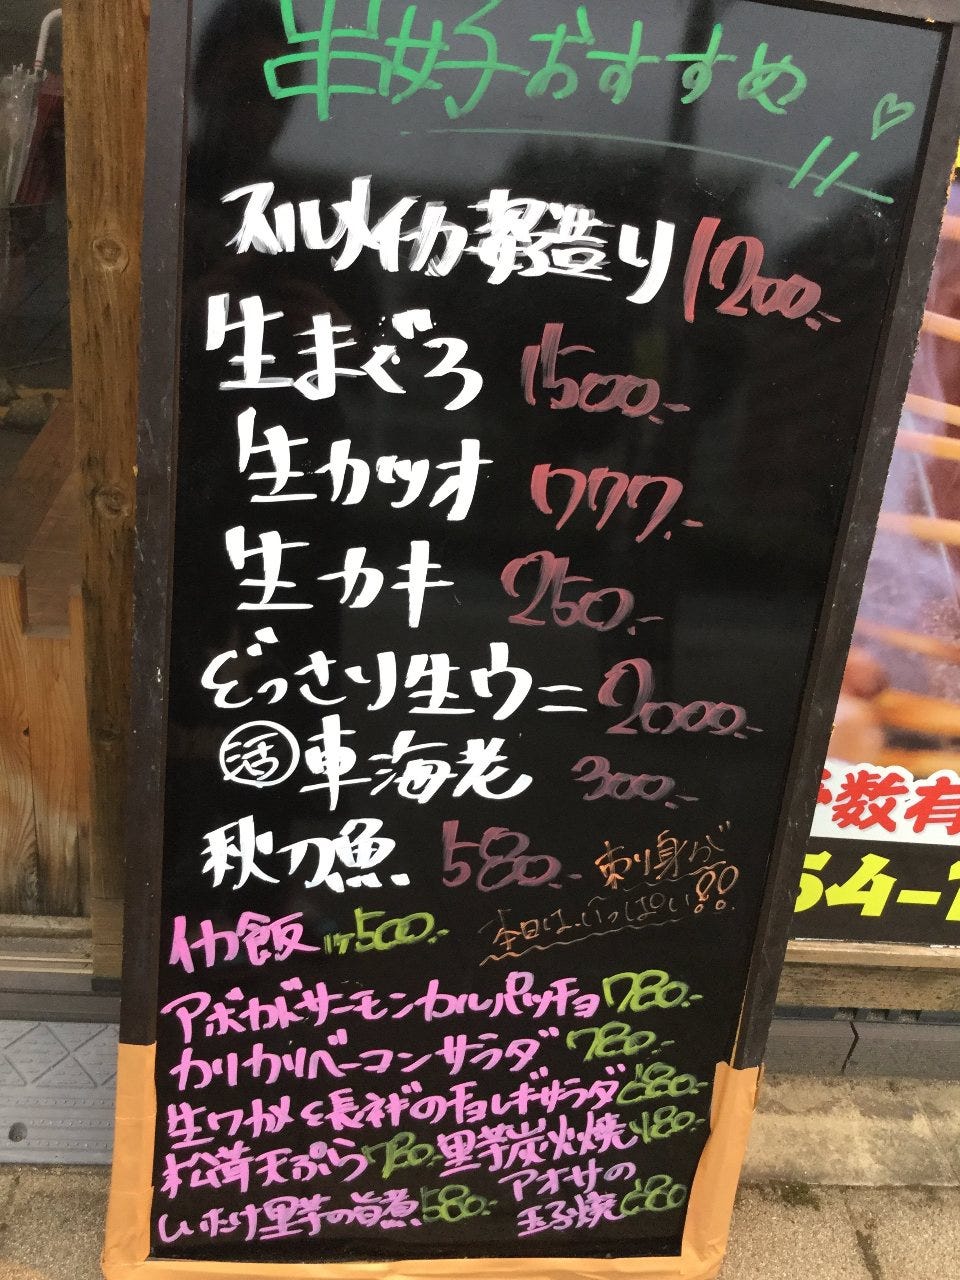 串好おすすめ♡
スルメイカ姿造り 1200.-
生まぐろ 1500.-
生カツオ 777.-
生カキ 250.-
どっさり生ウニ 2000.-
活 車海老 300.-
秋刀魚 580.-
刺り身が
本日は、いっぱい!!
イカ飯 1ケ500.-
アボガドサーモンカルパッチョ 780.-
カリカリベーコンサラダ 780.-
生ワカメと長ネギのチョレギサラダ 680.-
松茸天ぷら 780.- 里芋炭火焼 480.-
しいたけ里芋の旨煮 580.- アオサの
玉子焼 680
数有
54-